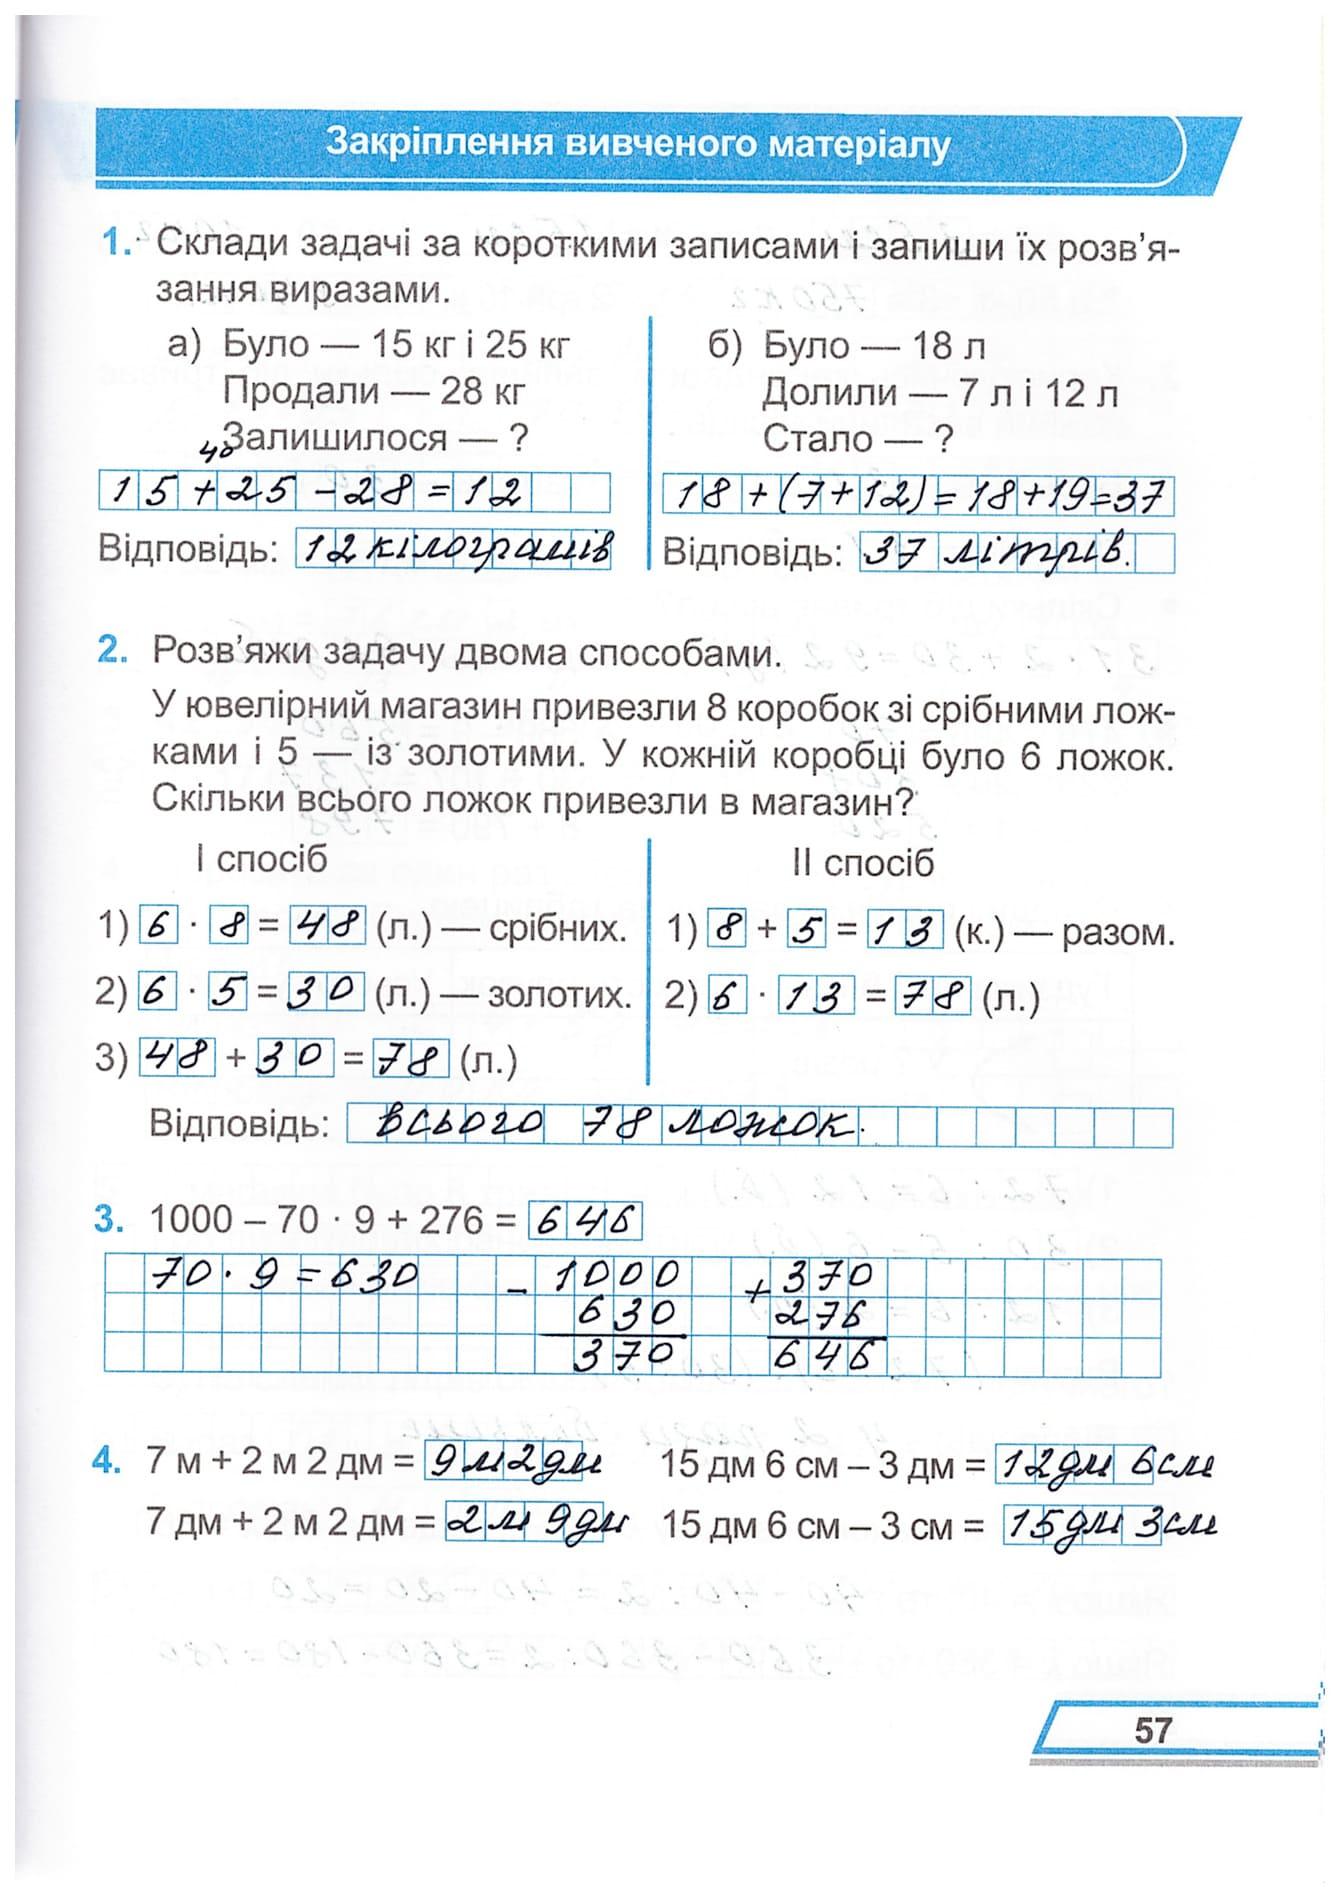 Закріплення вивченого матеріалу
1. Склади задачі за короткими записами і запиши їх розв’я-
зання виразами.
а) Було — 15 кг і 25 кг
Продали — 28 кг
Залишилося — ?
40
15+25-28=12
Відповідь: 12 кілограмів
б) Було — 18 л
Долили — 7 л і 12 л
Стало — ?
18+(7+12)=18+19=37
Відповідь: 37 літрів.
2. Розв’яжи задачу двома способами.
У ювелірний магазин привезли 8 коробок зі срібними лож-
ками і 5 — із золотими. У кожній коробці було 6 ложок.
Скільки всього ложок привезли в магазин?
І спосіб
1) 6 · 8 = 48 (л.) — срібних.
2) 6 · 5 = 30 (л.) — золотих.
3) 48 + 30 = 78 (л.)
ІІ спосіб
1) 8 + 5 = 13 (к.) — разом.
2) 6 · 13 = 78 (л.)
Відповідь: всього 78 ложок.
3. 1000 – 70 · 9 + 276 = 646
70 · 9 = 630 - 1000 + 370
630 276
370 646
4. 7 м + 2 м 2 дм = 9 м 2 дм 15 дм 6 см – 3 дм = 12 дм 6 см
7 дм + 2 м 2 дм = 2 м 9 дм 15 дм 6 см – 3 см = 15 дм 3 см
57